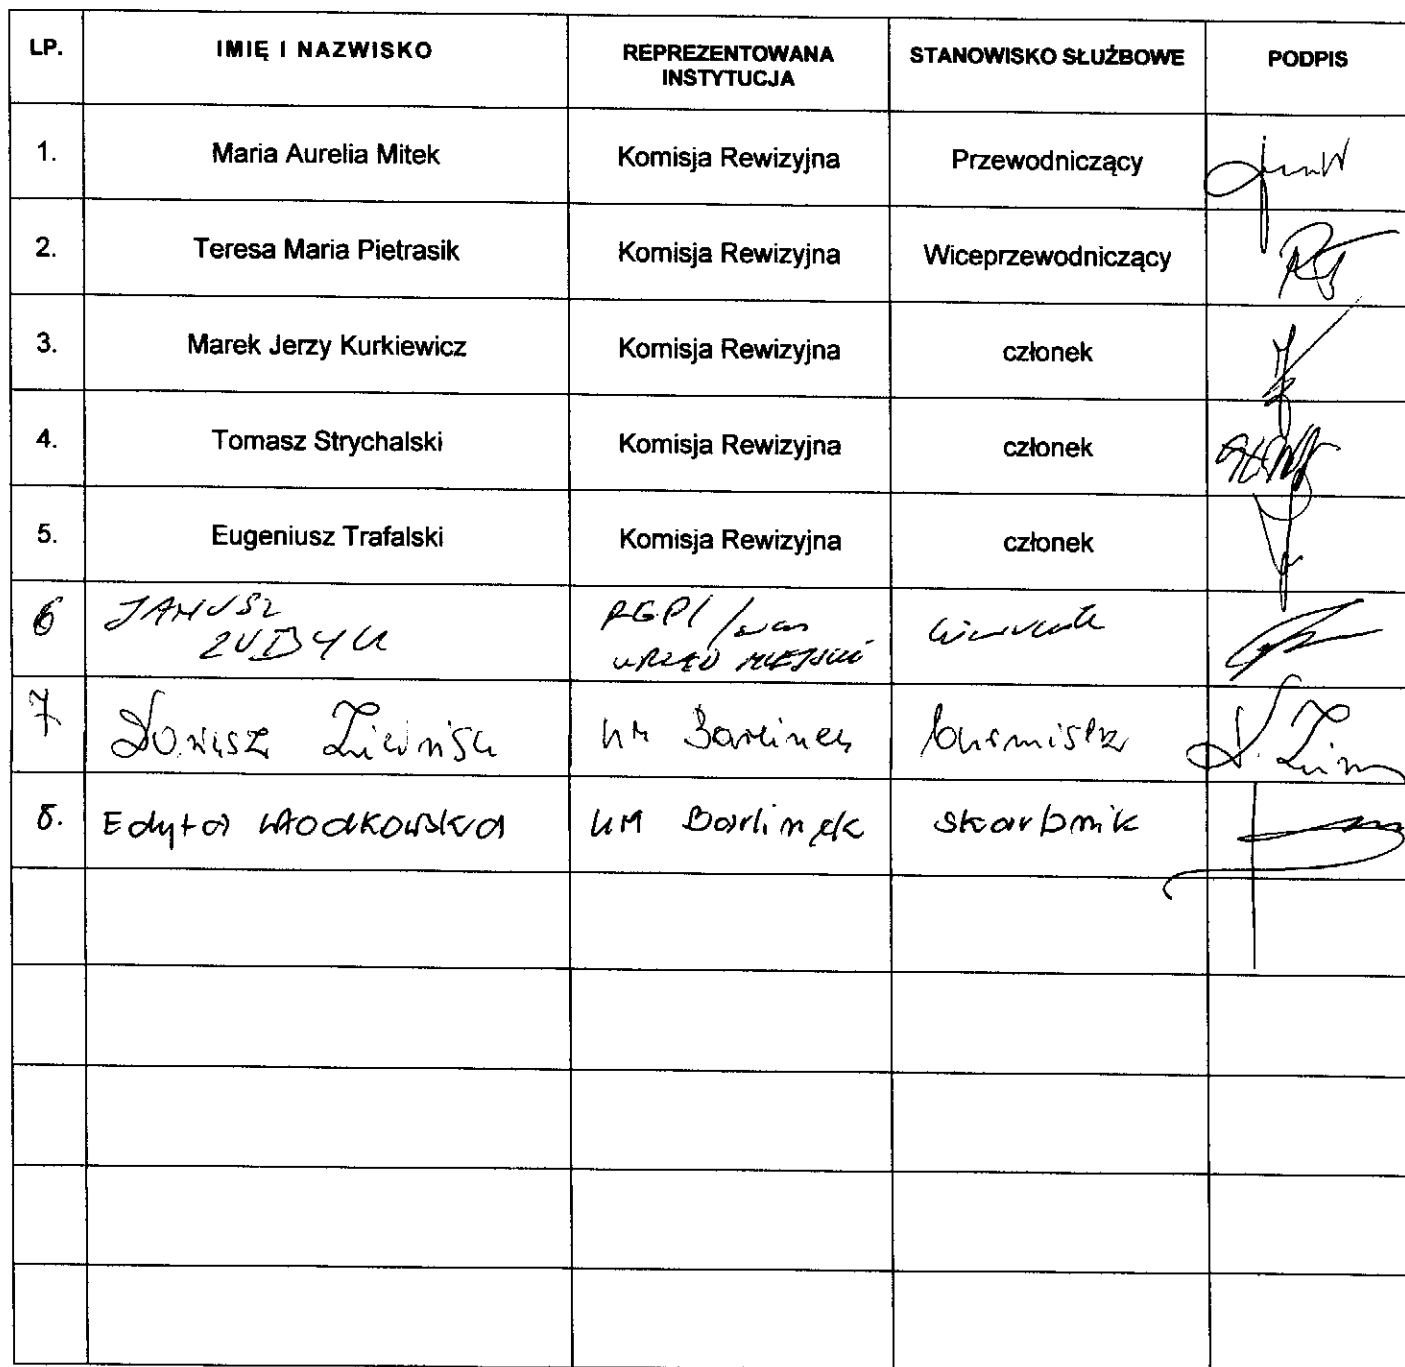 LP. IMIĘ I NAZWISKO REPREZENTOWANA INSTYTUCJA STANOWISKO SŁUŻBOWE PODPIS
1. Maria Aurelia Mitek Komisja Rewizyjna Przewodniczący
2. Teresa Maria Pietrasik Komisja Rewizyjna Wiceprzewodniczący
3. Marek Jerzy Kurkiewicz Komisja Rewizyjna członek
4. Tomasz Strychalski Komisja Rewizyjna członek
5. Eugeniusz Trafalski Komisja Rewizyjna członek
6 JANUSZ
URZĄD MIEJSKI
7 UM Barlinek burmistrz
8. Edyta Włodkowska UM Barlinek skarbnik